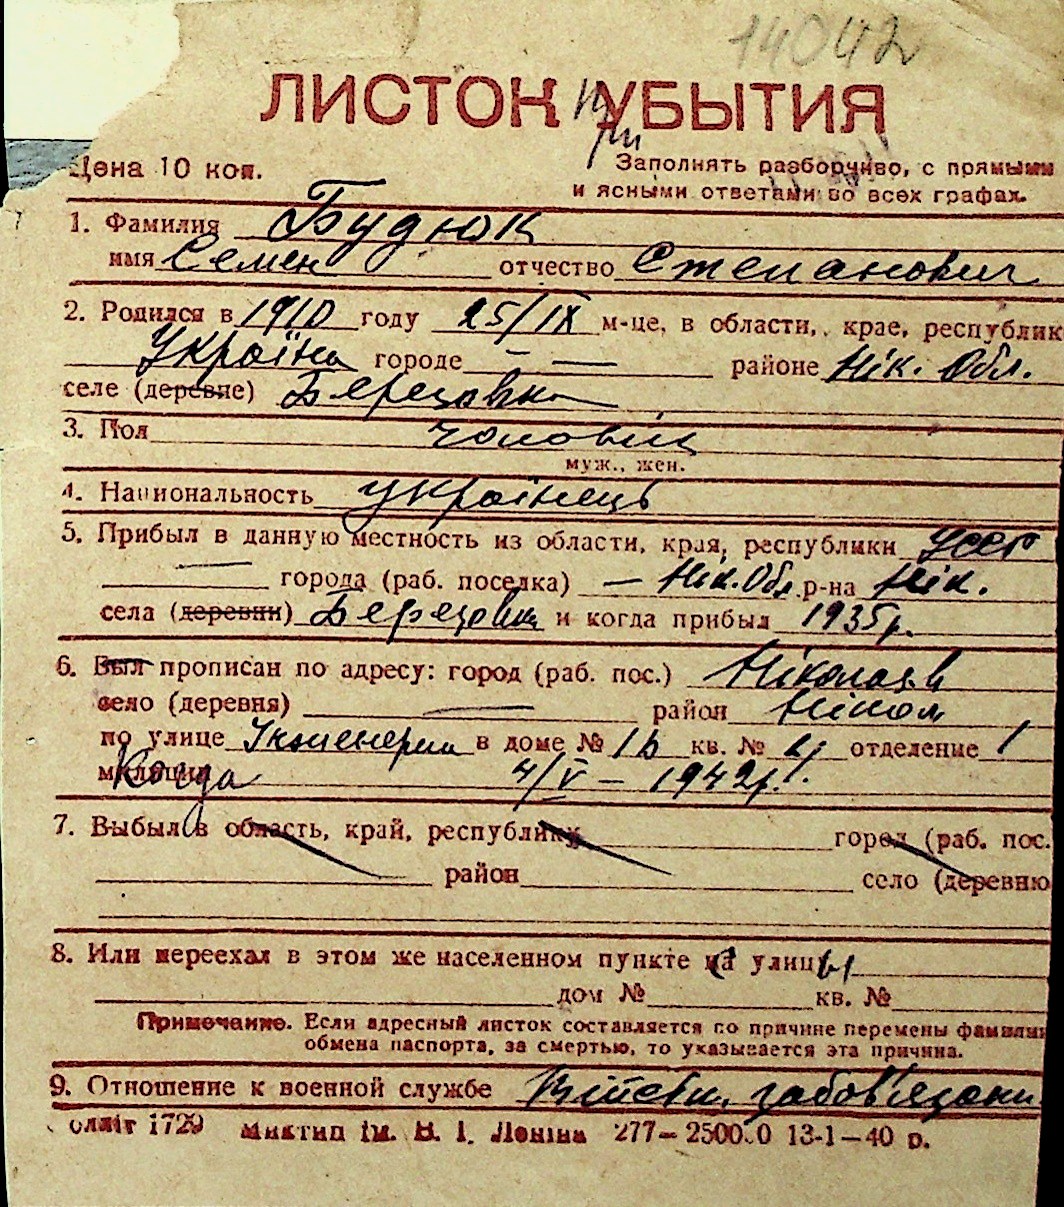 14042
ЛИСТОК УБЫТИЯ
Цена 10 коп.
Заполнять разборчиво, с прямыми
и ясными ответами во всех графах.
1. Фамилия Будюк
имя Семен отчество Степанович
2. Родился в 1910 году 25/IX м-це, в области, крае, республик
Україна городе — — районе Нік. Обл.
селе (деревне) Березовка
3. Пол чоловік
муж., жен.
4. Национальность українець
5. Прибыл в данную местность из области, края, республики УССР
— города (раб. поселка) — Нік. Обл. р-на Нік.
села (деревни) Березовка и когда прибыл 1935р.
6. Был прописан по адресу: город (раб. пос.) Ніколаєв
село (деревня) — район Нікол
по улице в доме № 1б кв. № 4, отделение 1
милиции Когда 4/V — 1942р.
7. Выбыл в область, край, республику город (раб. пос.
район село (деревню
8. Или переехал в этом же населенном пункте на улицы
дом № кв. №
Примечание. Если адресный листок составляется по причине перемены фамилии
обмена паспорта, за смертью, то указывается эта причина.
9. Отношение к военной службе Війсьн. забов'язани
олліт 1729 Миктип ім. В. І. Леніна 277—2500.0 13-1—40 р.